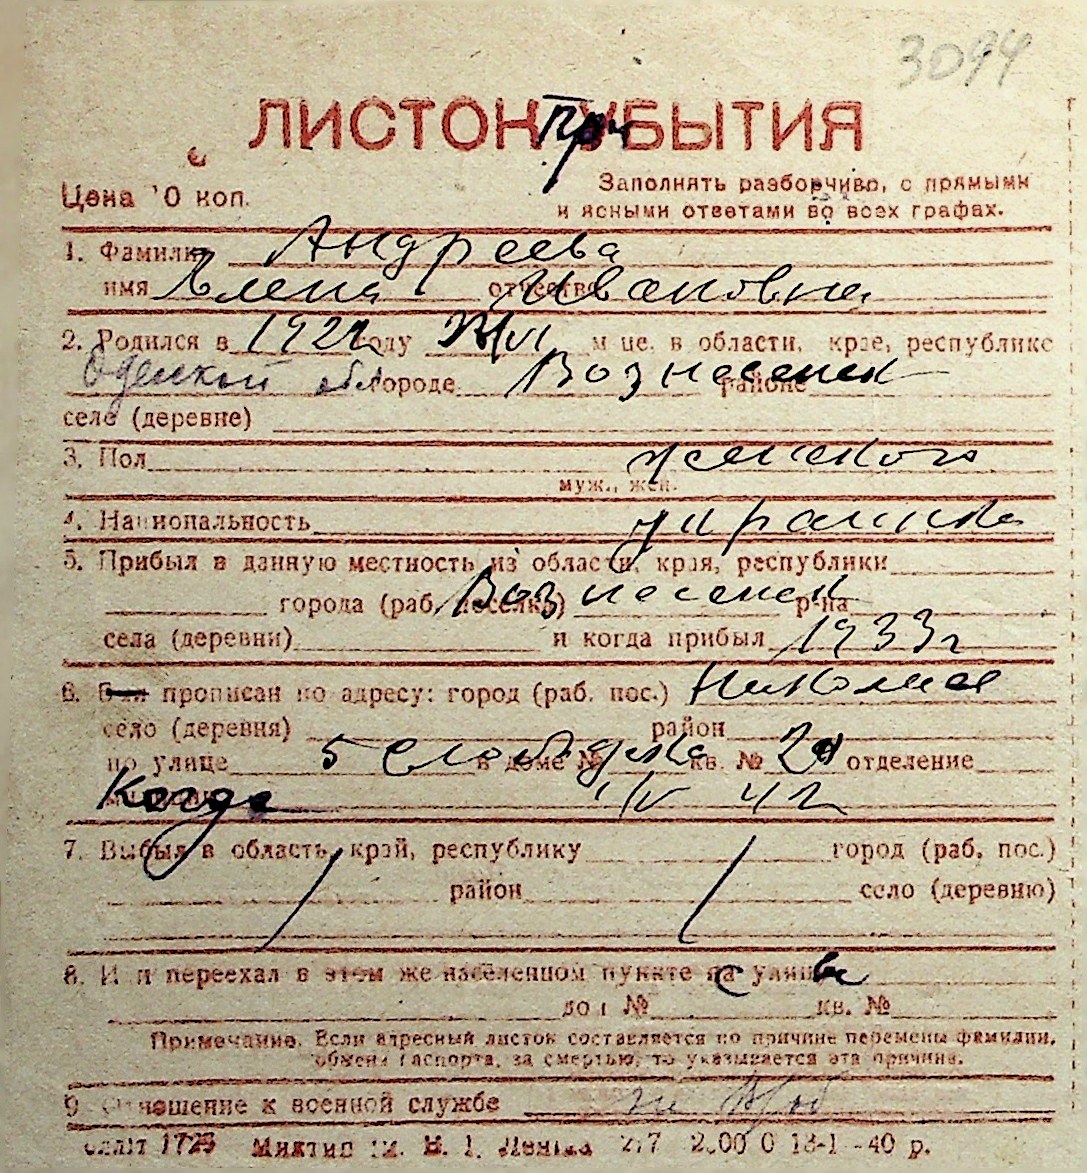 3094
ЛИСТОК При УБЫТИЯ
Цена 10 коп.
Заполнять разборчиво, с прямыми
и ясными ответами во всех графах.
1. Фамилия Андреева
имя Елена отчество Ивановна
2. Родился в 1922 году м-це, в области, крае, республике
Одесской обл городе Вознесенск районе
селе (деревне)
3. Пол женского
муж., жен.
4. Национальность украинка
5. Прибыл в данную местность из области, края, республики
города (раб. поселка) Вознесенск р-на
села (деревни) и когда прибыл 1933 г
6. Был прописан по адресу: город (раб. пос.) Николаев
село (деревня) район
по улице 5 слободка в доме № кв. № 2а отделение
Когда IV 42
7. Выбыл в область, край, республику город (раб. пос.)
район село (деревню)
8. Или переехал в этом же населенном пункте на улицу с
дом № кв. №
Примечание. Если адресный листок составляется по причине перемены фамилии,
обмена паспорта, за смертью, то указывается эта причина.
9. Отношение к военной службе
1723 В. И. Ленина 18-1 -40 р.